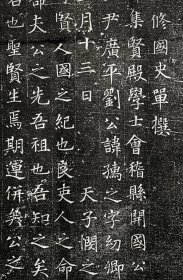 修國史單撰
集賢殿學士會稽縣開國公
尹廣平劉公諱㧑之字幼卿
月十三日　天子闕之
賢人國之紀也良吏人之命
部夫公之先吾祖也吾知之矣
者也聖賢生焉期運併與公之